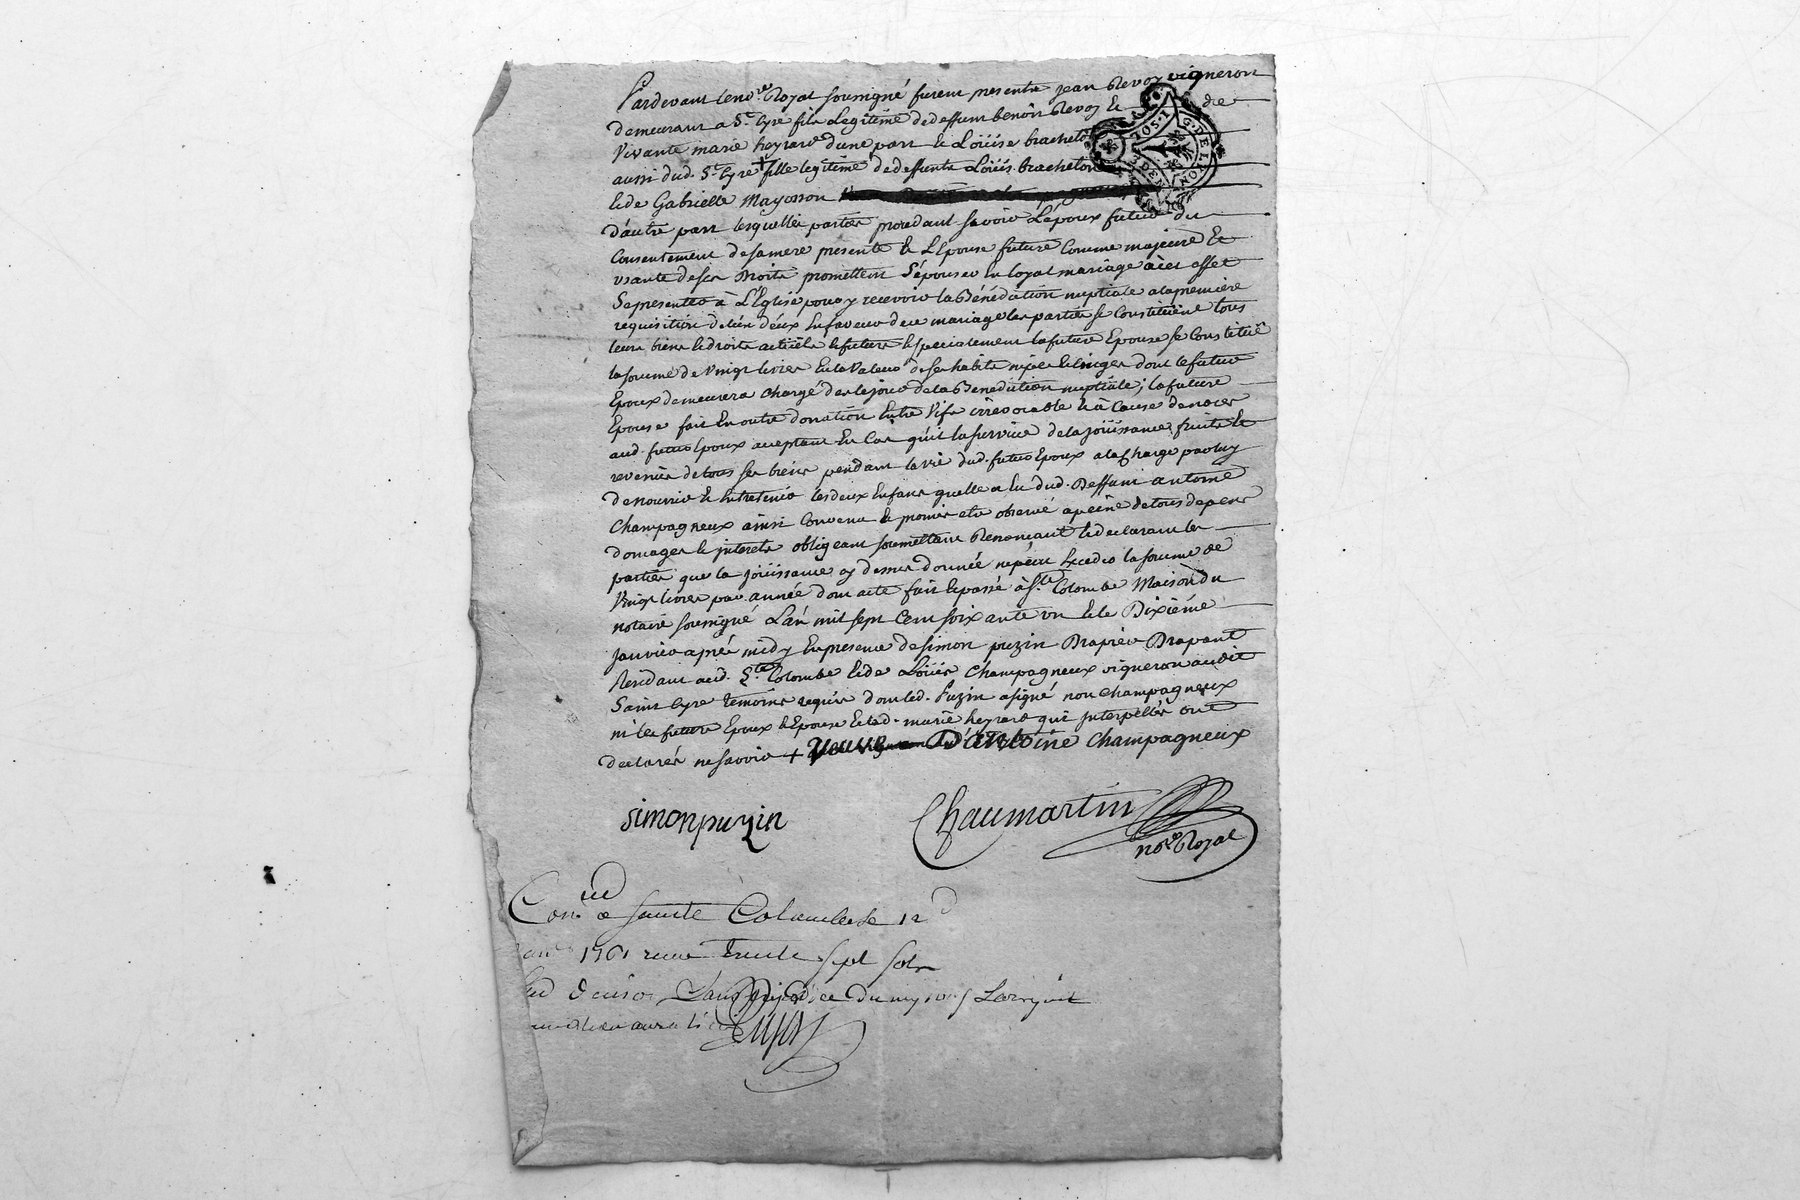 Pardevant le no.re Royal soussigné furent presents jean Revoy vigneron
demeurant a St. Cyre fils Legitime de deffunt benoit Revoy et de
vivante marie heyrard d'une part et Loüise bracheton
aussi dud. St. Cyre + fille legitime de deffunts Loüis bracheton
et de Gabrielle mayosson
d'autre part lesquelles parties procedant savoir L'époux futur du
Consentement de sa mere presente et L'Epouse future comme majeure et
usante de ses Droits promettent s'épouser en loyal mariage à cet effet
se presenter à L'Eglise pour y recevoir la Bénédiction nuptiale a la premiere
requisition de l'un d'eux en faveur de ce mariage les parties se Constituënt tous
leurs biens et droits actüels et futurs et specialement la future Epouse se Constituë
la somme de vingt livres en la valeur de ses habits nipes et linges dont le futur
Epoux demeurera chargé des le jour de la Bénédiction nuptiale; la future
Epouse fait en outre donation entre vifs irrévocable et à Cause de noces
aud. futur Epoux acceptant en Cas qu'il la survive de la joüissance fruits et
revenus de tous ses biens pendant la vie dud. futur Epoux a la Charge par luy
de nourrir et entretenir les deux enfans quelle a eu dud. Deffunt antoine
Champagneux ainsi Convenu et promis etre observé a peine de tous depens
domages et interets obligeant soumettant Renoncant et declarant les
parties que la joüissance cy dessus donnée ne peut exceder la somme de
vingt livres par année dont acte fait et passé à Ste. Colombe Maison du
notaire soussigné L'an mil sept cent soixante un et le Dixième
janvier après midy en presence de simon puzin Drapier Drapant
Residant aud. Ste. Colombe et de Loüis Champagneux vigneron audit
Saint Cyre temoins requis dont led. Puzin a signé non champagneux
ni les futurs Epoux et Epouse et lad. marie heyrard qui interpellés ont
declarés ne savoir + veuve D'antoine Champagneux
simon puzin
Chaumartin
no.re Royal
a sainte Colombe le 12
1761 recu trente sept sols